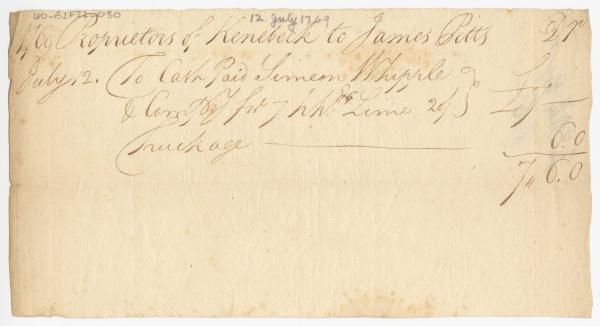 60-B2F22-030 12 July 1769
1769 Proprietors of Kenebeck to James Pitts Dr
July 12. To Cash Paid Simeon Whipple
& Comp.y for 7 hhds Lime 20/ £7 —
Truckage — 6.0
7" 6.0